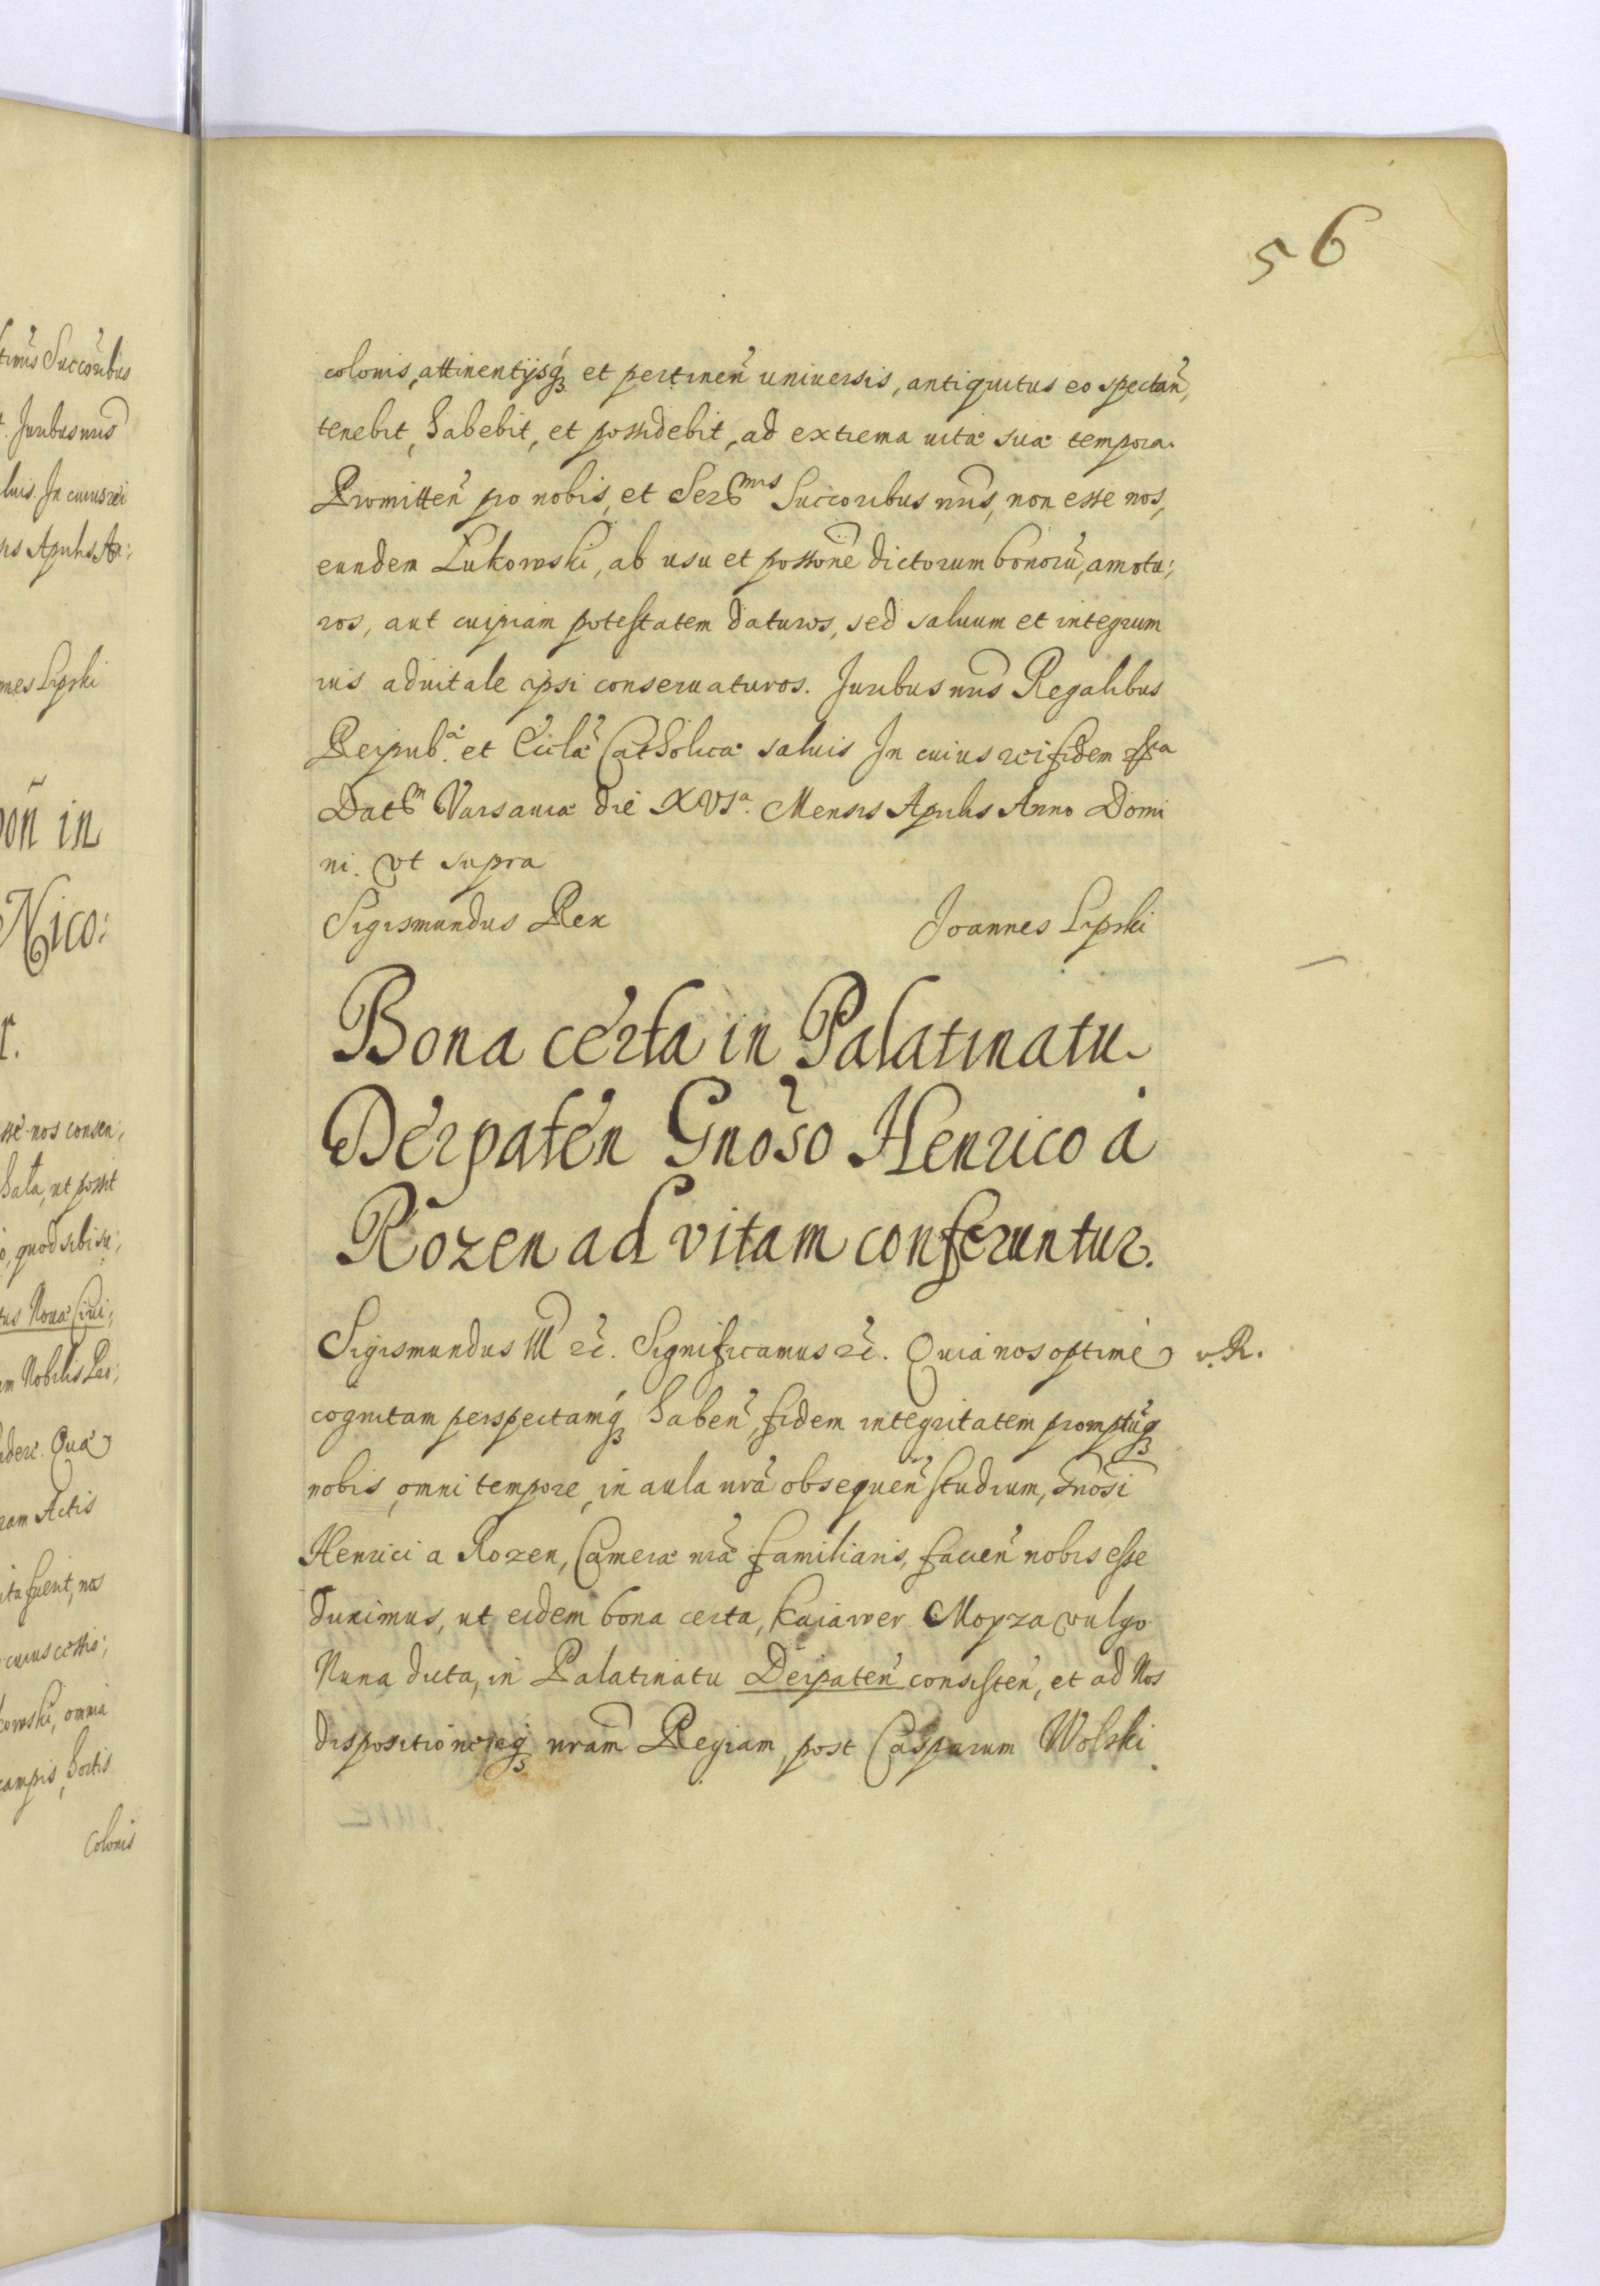 56
colonis, attinentijsq₃ et pertinen̄ uniuersis, antiquitus eo spectan̄,
tenebit, habebit, et possidebit, ad extrema uitæ suæ tempora.
Promitten̄ pro nobis, et Ser̄mis Succoribus nris, non esse nos,
eundem Lukowski, ab usu et possone dictorum bonorū, amotu;
ros, aut cuipiam potestatem daturos, sed saluum et integrum
ius aduitale ipsi conseruaturos. Juribus nris Regalibus
Reipub.æ et Eccla Catholicæ saluis In cuius rei fidem
Datm Varsauiæ die XVIa. Mensis Aprilis Anno Domi
ni. vt supra
Sigismundus Rex
Joannes Lipski
Bona certa in Palatinatu
Derpaten Gnoso Henrico a
Rozen ad vitam conferuntur.
Sigismundus III etc. Significamus etc. Quia nos optime
v. R.
cognitam perspectamq₃ haben̄ fidem integritatem promptūq₃
nobis, omni tempore, in aula nrā obsequen̄ studium, Gnosi
Henrici a Rozen, Cameræ nrā familiaris, facien̄ nobis esse
duximus, ut eidem bona certa, Kaiawer Moyza vulgo
Nuna dicta, in Palatinatu Derpaten̄ consisten̄, et ad Nos
dispositionemq₃ nram Regiam, post Casparum Wolski
timis Succoribus
Juribus nris
luis. In cuius rei
sis Aprilis A:
nes Lipski
on̄ in
Nico:
r.
sse nos consen;
hata, ut possit
o, quod sibi
tus Noua Ciui;
m Nobilis
dere. Qua
ram Actis
ita fuerit, nos
cuius cessio;
kowski, omnia
campis, hortis
Colonis